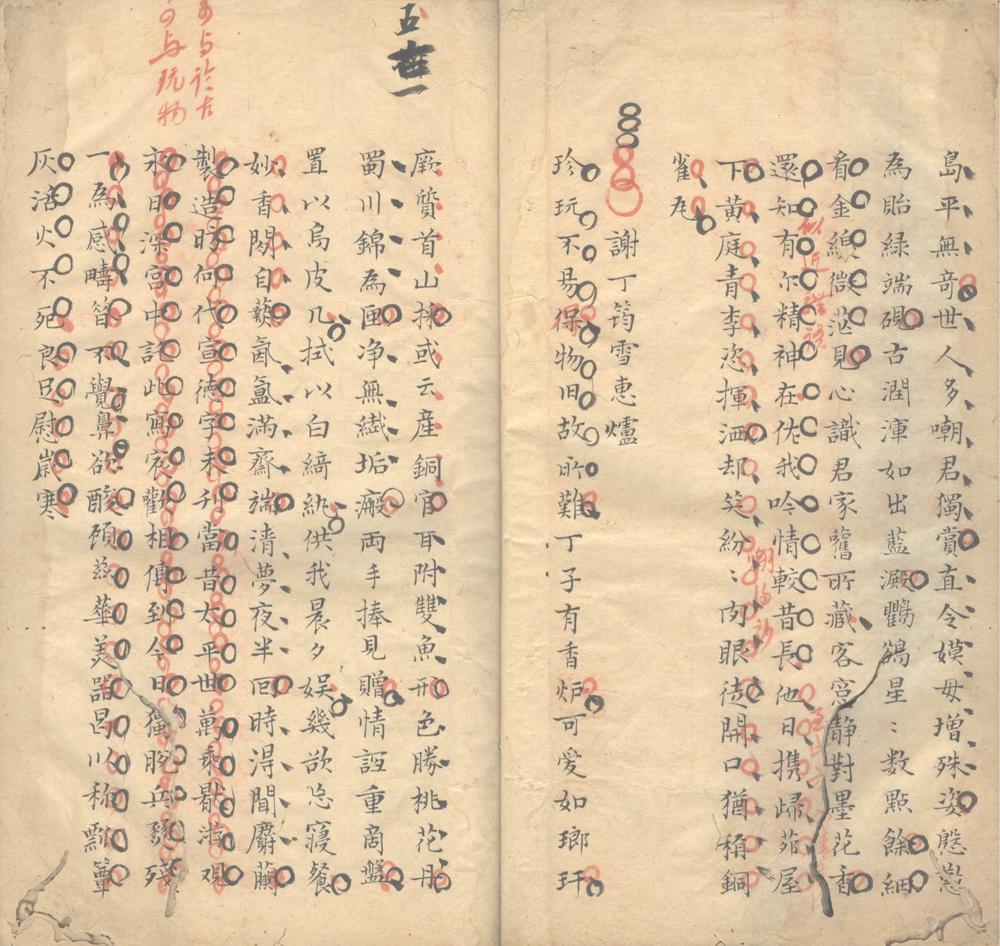 島平無奇世人多嘲君獨賞直令嫫母增殊姿慇懃
為貽緑端硯古潤渾如出藍澱鸜鵒星〻数點餘細
看金線微茫見心識君家舊所藏客窓静對墨花香
還知有尔精神在佐我吟情較昔長他日携歸茆屋
下黄庭青李恣揮洒却笑紛〻肉眼徒開口猶稱銅
雀瓦
謝丁筠雪惠爐
珍玩不易保物旧故所難丁子有香炉可愛如瑯玕
厥質首山採或云産銅官耳附雙魚形色勝桃花丹
蜀川錦為匣净無纎垢瘢両手捧見贈情誼重商盤
置以烏皮几拭以白綺紈供我晨夕娱幾欲忘寝餐
妙香閟自爇氤氲滿齋端清夢夜半回時得聞麝蘭
製造昉何代宣徳字未刓當昔太平世萬乘尠游观
永日深宫中託此寫衷歡相傳到今日獨脫兵燹殘
一為感疇昔不覺鼻欲酸顧兹華美器曷以稱瓢簞
灰火不死良足慰歲寒
五 一
与於古
与玩物